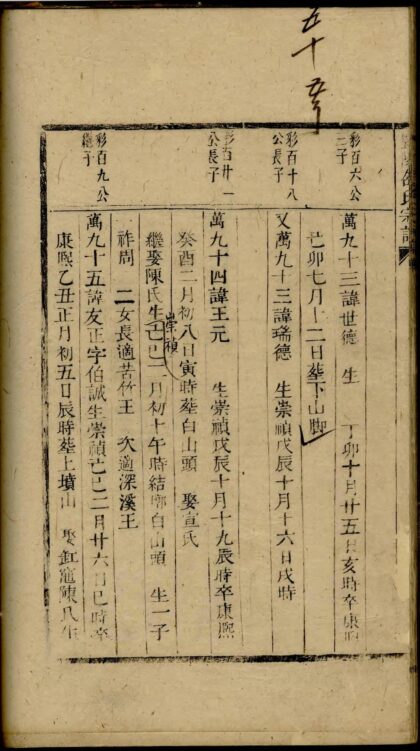 五十
彩百六公
二子
萬九十三諱世德 生 丁卯十月廿五日亥時卒康熙
己卯七月十二日葬下山脚
彩百十八
公長子
又萬九十三諱瑞德 生崇禎戊辰十月十六日戌時
彩百廿一
公長子
萬九十四諱王元 生崇禎戊辰十月十九辰時卒康熙
癸酉二月初八日寅時葬白山頭 娶宣氏
繼娶陳氏生崇禎己巳二月初十午時結𡻕白山頭 生一子
祚周 二女長適苦竹王 次適深溪王
彩百九公
繼子
萬九十五諱友正字伯誠生崇禎己巳二月廿六日巳時卒
康熙乙丑正月初五日辰時葬上墳山 娶釭竈陳氏生
氏宗譜